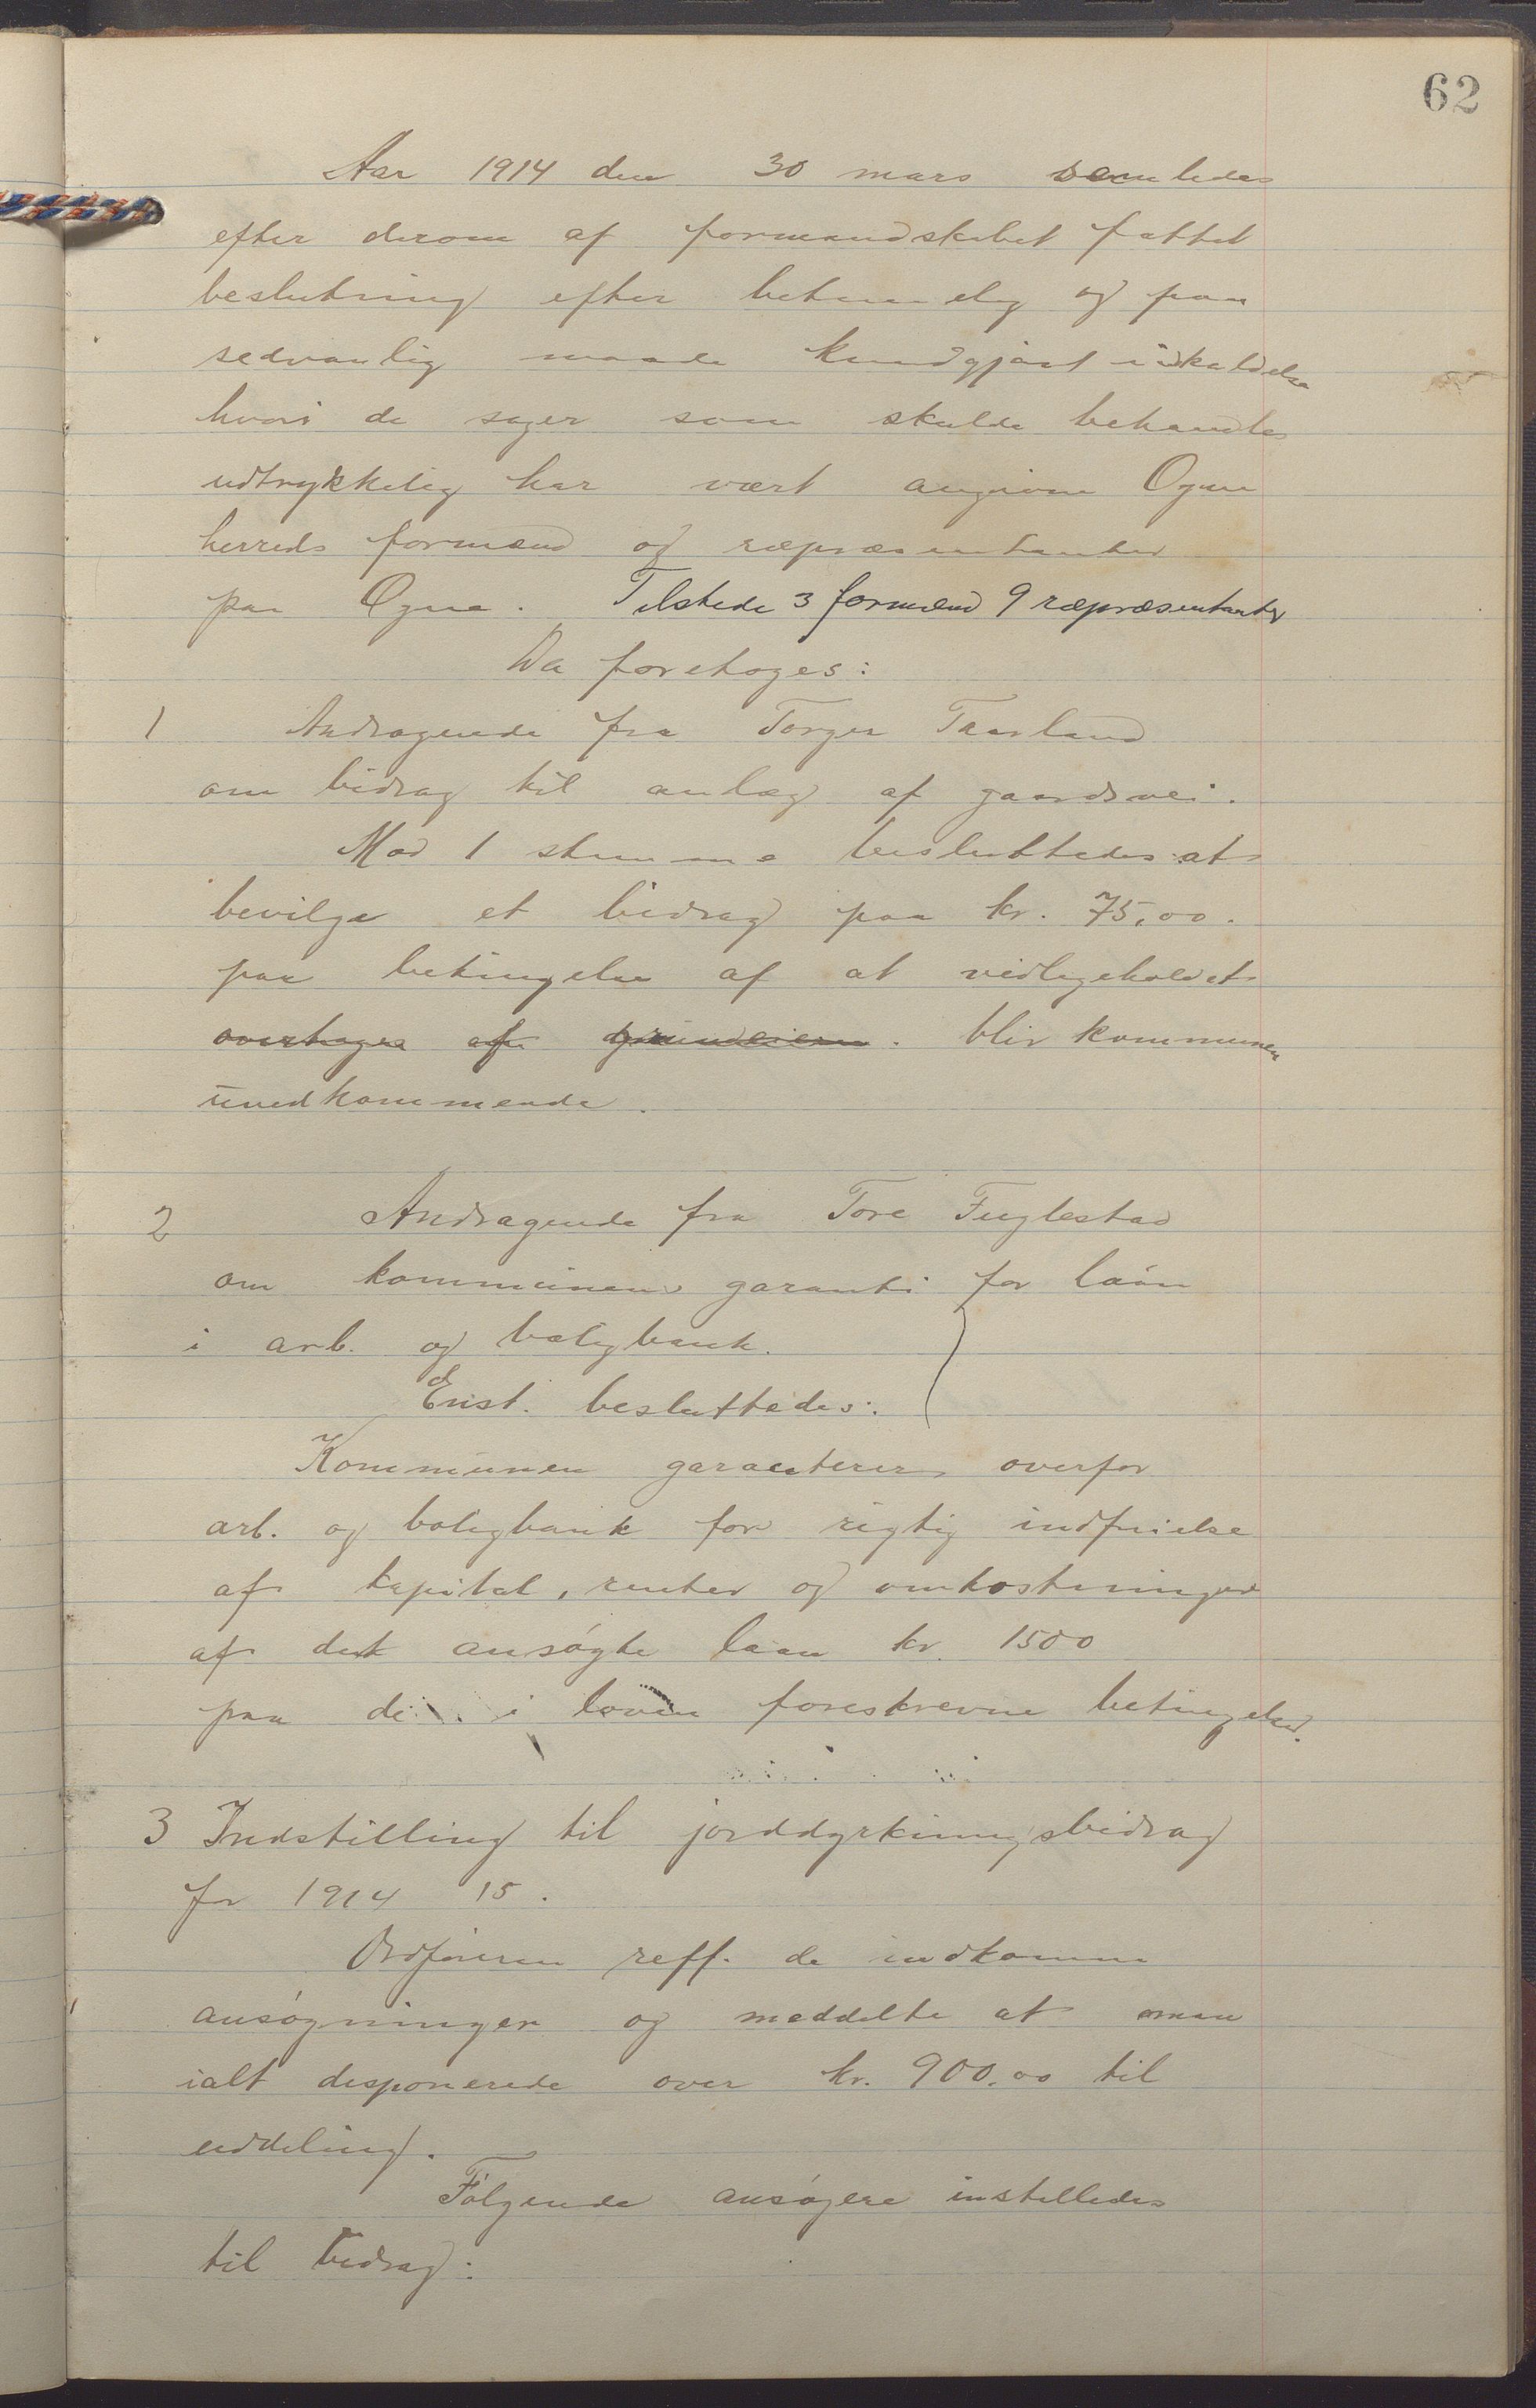 62
Aar 1914 den 30 mars samledes
efter derom af formandskabet fattet
beslutning efter betimelig og paa
sedvanlig maade kundgjort indkaldelse
hvori de sager som skulde behandles
udtrykkelig har vært angivne Ogne
herreds formænd og repræsentanter
paa Ogne. Tilstede 3 formænd 9 repræsentanter
Da foretoges:
1 Andragende fra Torger Taarland
om bidrag til anlæg af gaardsvei.
Mod 1 stemme besluttedes at
bevilge et bidrag paa kr. 75,00.
paa betingelse af at vedligeholdet
overtages af grundeierne. blir kommunen
uvedkommende.
2 Andragende fra Tore Fuglestad
om kommunens garanti for laan
i arb. og boligbank.
Enst. besluttedes:
Kommunen garanterer overfor
arb. og boligbank for rigtig indfrielse
af kapital, renter og omkostninger
af det ansøgte laan kr. 1500
paa de i loven foreskrevne betingelser.
3 Indstilling til jorddyrkningsbidrag
for 1914 15.
Ordføreren reff. de indkomne
ansøgninger og meddelte at man
ialt desponerede over kr. 900.00 til
uddeling.
Følgende ansøgere instilledes
til bidrag: